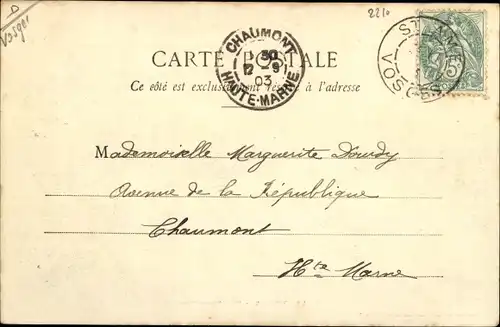 D
Vosges
2210
CARTE POSTALE
Ce côté est exclusivement réservé à l'adresse
CHAUMONT
30
12 9
03
HAUTE-MARNE
VOSGES
5
Mademoiselle Marguerite Dourdy
Avenue de la République
Chaumont
Hte Marne